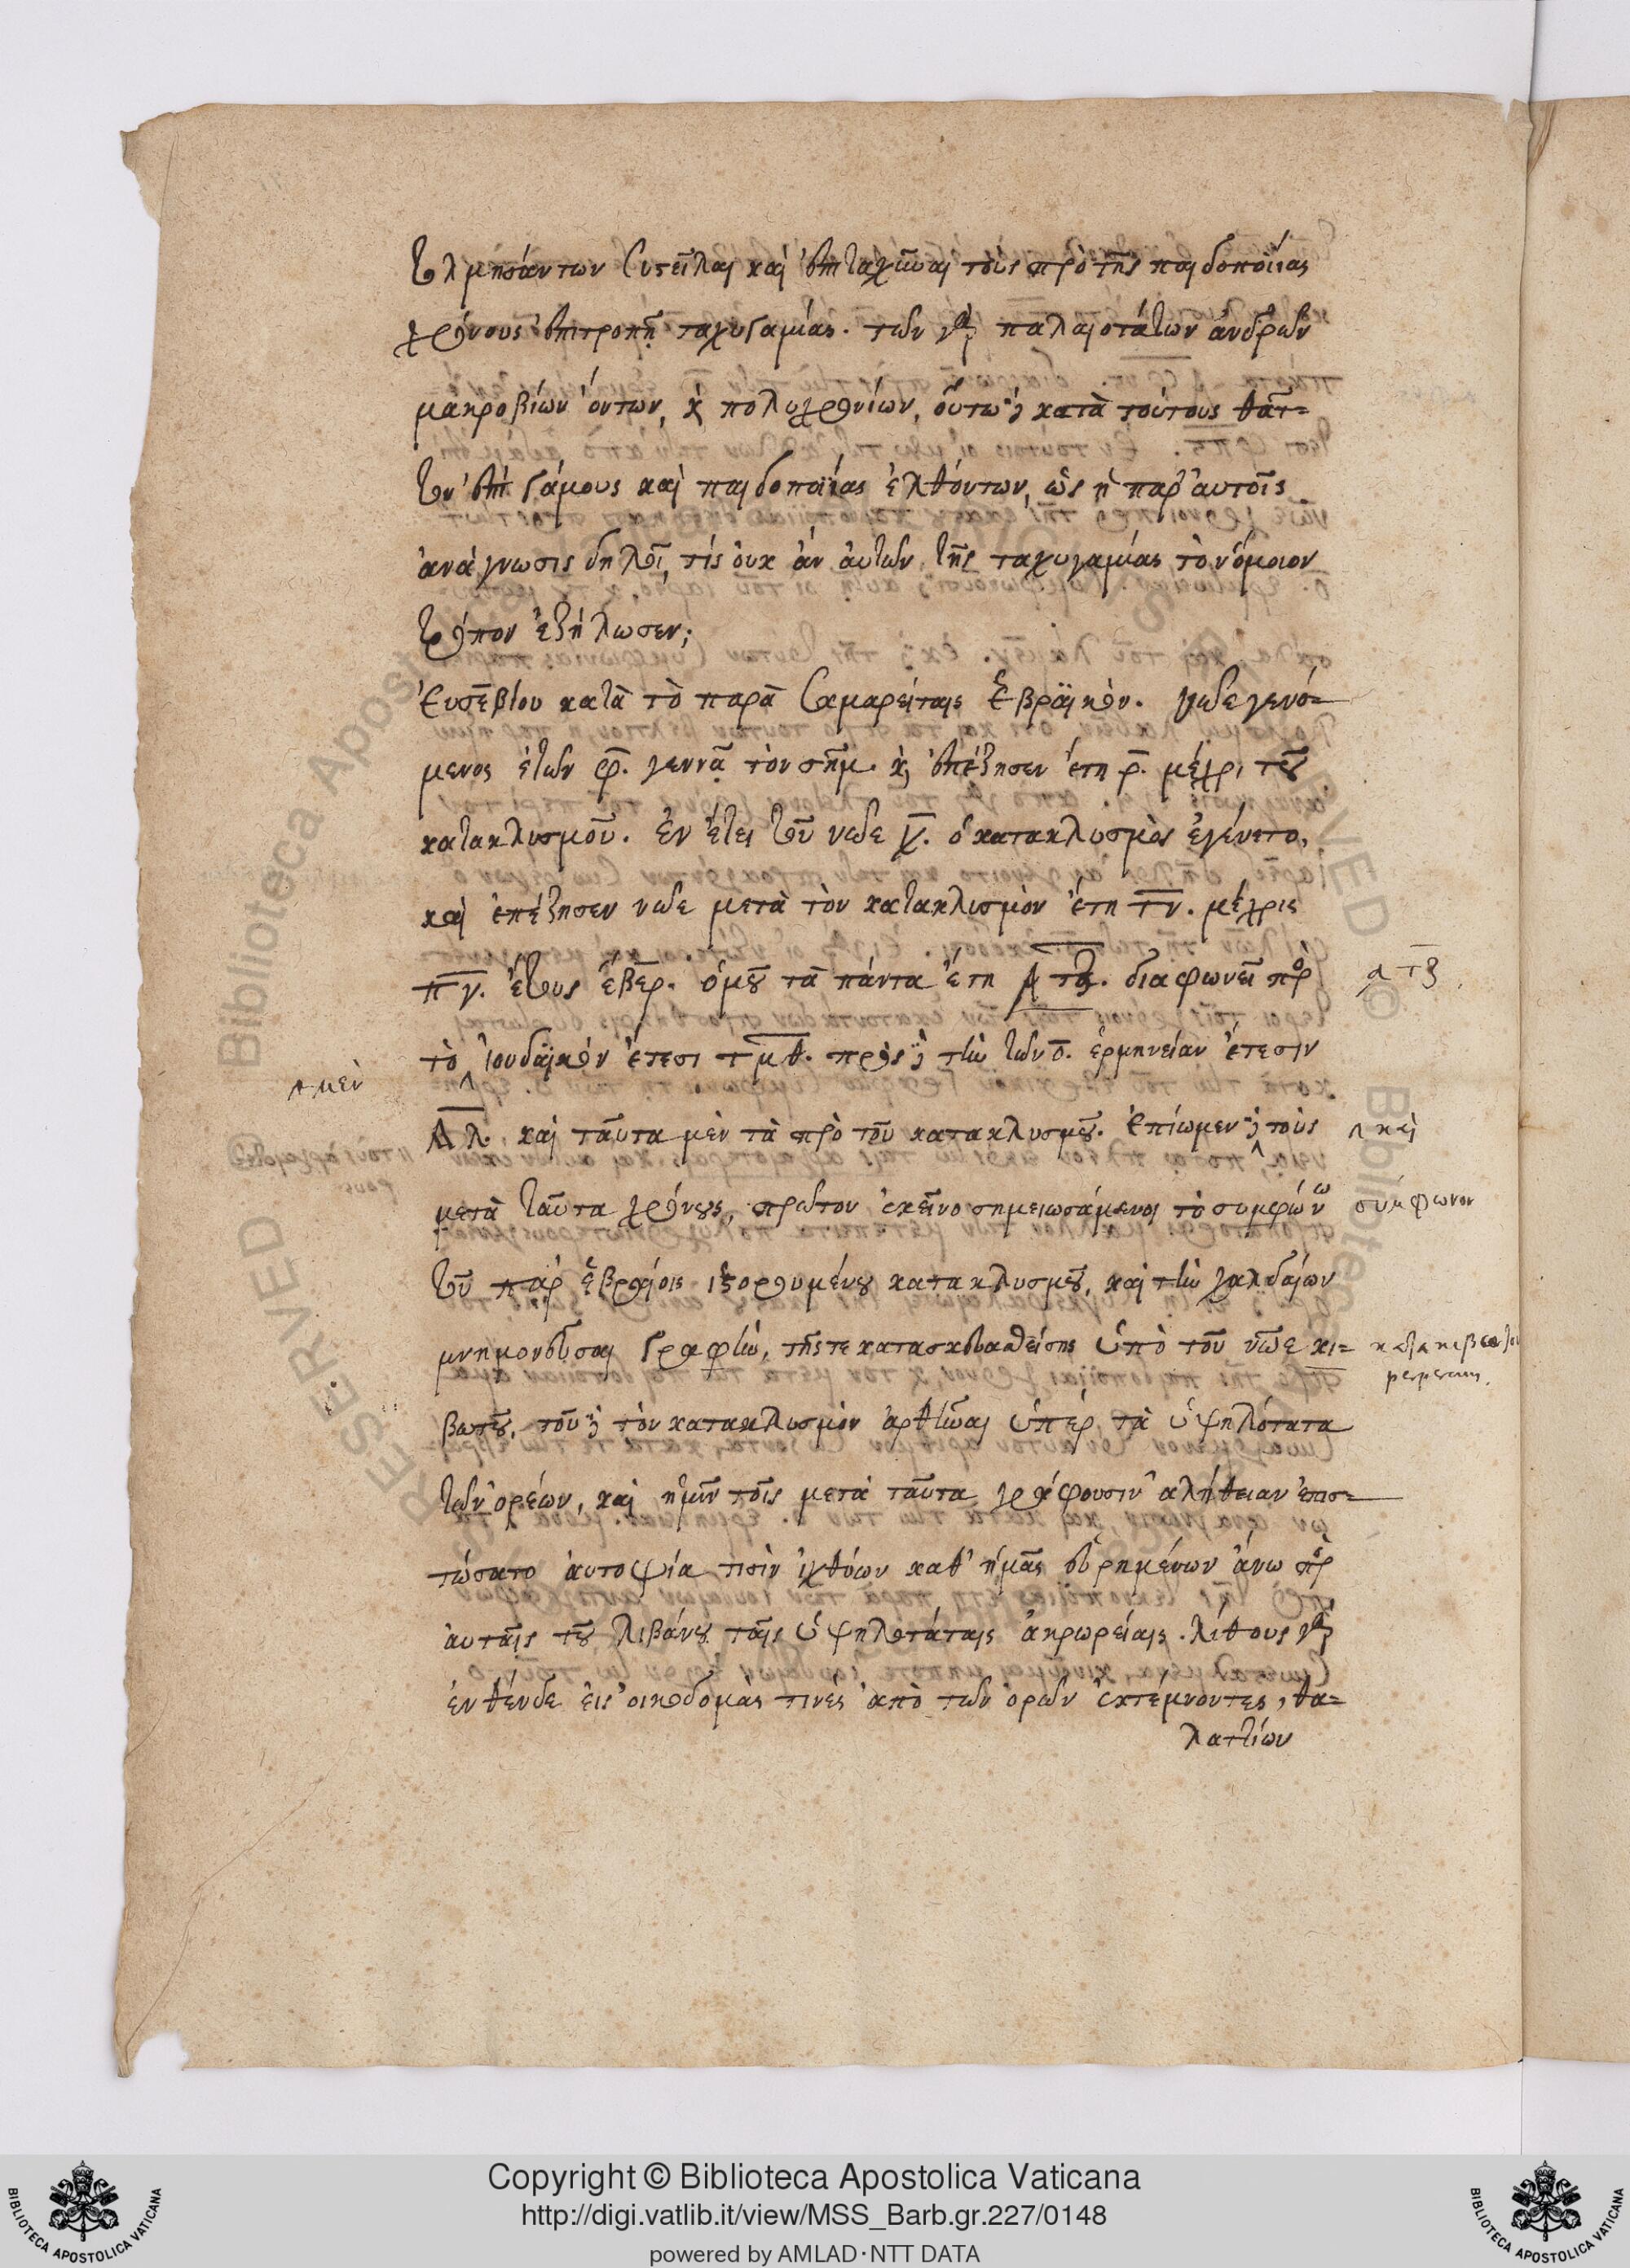 τολμησάντων συστεῖλαι καὶ ἐπιταχῦναι τοὺς πρὸ τῆς παιδοποιίας
χρόνους ἐπιτροπῇ ταχυγαμίας. τῶν γὰρ παλαιοτάτων ἀνδρῶν
μακροβίων ὄντων, κ πολυχρονίων, οὕτω δὲ κατὰ τούτους θᾶτ=
τον ἐπὶ γάμους καὶ παιδοποιίας ἐλθόντων, ὡς ἡ παρ' αὐτοῖς
ἀνάγνωσις δηλοῖ, τίς οὐκ ἂν αὐτῶν τῆς ταχυγαμίας τὸν ὅμοιον
τρόπον ἐζήλωσεν;
Ἐυσεβίου κατὰ τὸ παρὰ Σαμαρείταις ἑβραϊκόν. νῶε γενό=
μενος ἐτῶν φ. γεννᾷ τὸν σῆμ. κ ἐπέζησεν ἔτη ρ. μέχρι τοῦ
κατακλυσμοῦ. ἐν ἔτει τοῦ νῶε χ. ὁ κατακλυσμὸς ἐγένετο,
καὶ ἐπέζησεν νῶε μετὰ τὸν κατακλισμὸν ἔτη τν. μέχρις
πγ. ἔτους ἕβερ. ὁμοῦ τὰ πάντα ἔτη διαφωνεῖ πρ
ατζ
τὸ ἰουδαϊκὸν ἔτεσι τμθ. πρὸς δὲ τὴν τῶν ο. ἑρμηνείαν ἔτεσιν
μὲν
Αλ. καὶ ταῦτα μὲν τὰ πρὸ τοῦ κατακλυσμοῦ. ἐπίωμεν δὲ τοὺς
καὶ
μετὰ ταῦτα χρόνους, πρῶτον ἐκεῖνο σημειωσάμενοι τὸ συμφών
σύμφωνον
τοῦ παρ ἑβραίοις ἱστορουμένου κατακλυσμοῦ, καὶ τὴν χαλδαίων
μνημονεῦσαι γραφὴν, τῆς τε κατασκευασθείσης ὑπὸ τοῦ νῶε κι=
βωτοῦ, τοῦ δὲ τὸν κατακλυσμὸν ἀρθῆναι ὑπὲρ τὰ ὑψηλότατα
τῶν ὀρέων, καὶ ἡμῖν τοῖς μετὰ ταῦτα γράφουσιν ἀλήθειαν ἐπισ=
τώσατο αὐτοψία τισὶν ἰχθύων καθ' ἡμᾶς εὑρημένων ἄνω πρ
αὐταῖς τοῦ Λιβάνου ταῖς ὑψηλοτάταις ἀκρωρείαις. λίθους γὰρ
ἐνθένδε εἰς οἰκοδομὰς τινὲς ἀπὸ τῶν ὀρῶν ἐκτέμνοντες, θα=
λαττίων
Copyright © Biblioteca Apostolica Vaticana
http://digi.vatlib.it/view/MSS_Barb.gr.227/0148
powered by AMLAD·NTT DATA
BIBLIOTECA APOSTOLICA VATICANA
BIBLIOTECA APOSTOLICA VATICANA